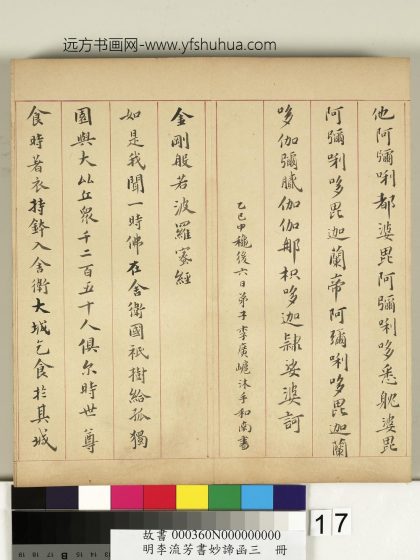 远方书画网-www.yfshuhua.com
他阿彌唎都婆毘阿彌唎哆悉耽婆毘
阿彌唎哆毘迦蘭帝阿彌唎哆毘迦蘭
哆伽彌膩伽伽那枳哆迦隸娑婆訶
乙巳中穐後六日弟子李廣嶾沐手和南書
金剛般若波羅蜜經
如是我聞一時佛在舍衛國祇樹給孤獨
園與大比丘眾千二百五十人俱尔時世尊
食時著衣持鉢入舍衛大城乞食於其城
17
故書 000360N000000000
明李流芳書妙諦函三 冊